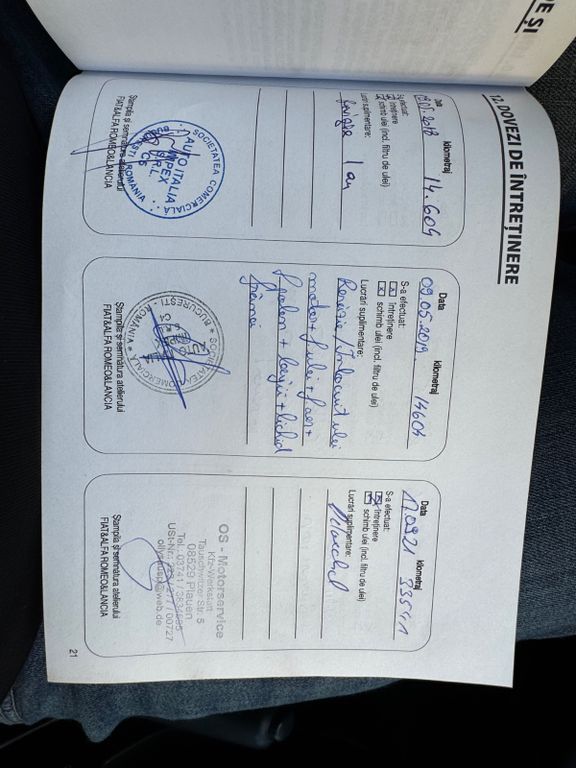 12. DOVEZI DE ÎNTREȚINERE
Data kilometraj
2018 14.604
S-a efectuat:
întreținere
schimb ulei (incl. filtru de ulei)
Lucrări suplimentare:
SOCIETATEA COMERCIALĂ
AUTO ITALIA
IMPEX
S.R.L.
ROMANIA
Ștampila și semnătura atelierului
FIAT&ALFA ROMEO&LANCIA
Data kilometraj
09.05.2019 14604
S-a efectuat:
x întreținere
x schimb ulei (incl. filtru de ulei)
Lucrări suplimentare:
Revizie / Inlocuit ulei
motor + f.ulei + f.aer +
f.polen + + lichid
SOCIETATEA COMERCIALĂ
BUCUREȘTI - ROMÂNIA
Ștampila și semnătura atelierului
FIAT&ALFA ROMEO&LANCIA
Data kilometraj
17.09.21 33541
S-a efectuat:
x întreținere
x schimb ulei (incl. filtru de ulei)
Lucrări suplimentare:
OS - Motorservice
Kfz-Werkstatt
Str. 5
08529 Plauen
Ștampila și semnătura atelierului
FIAT&ALFA ROMEO&LANCIA
21